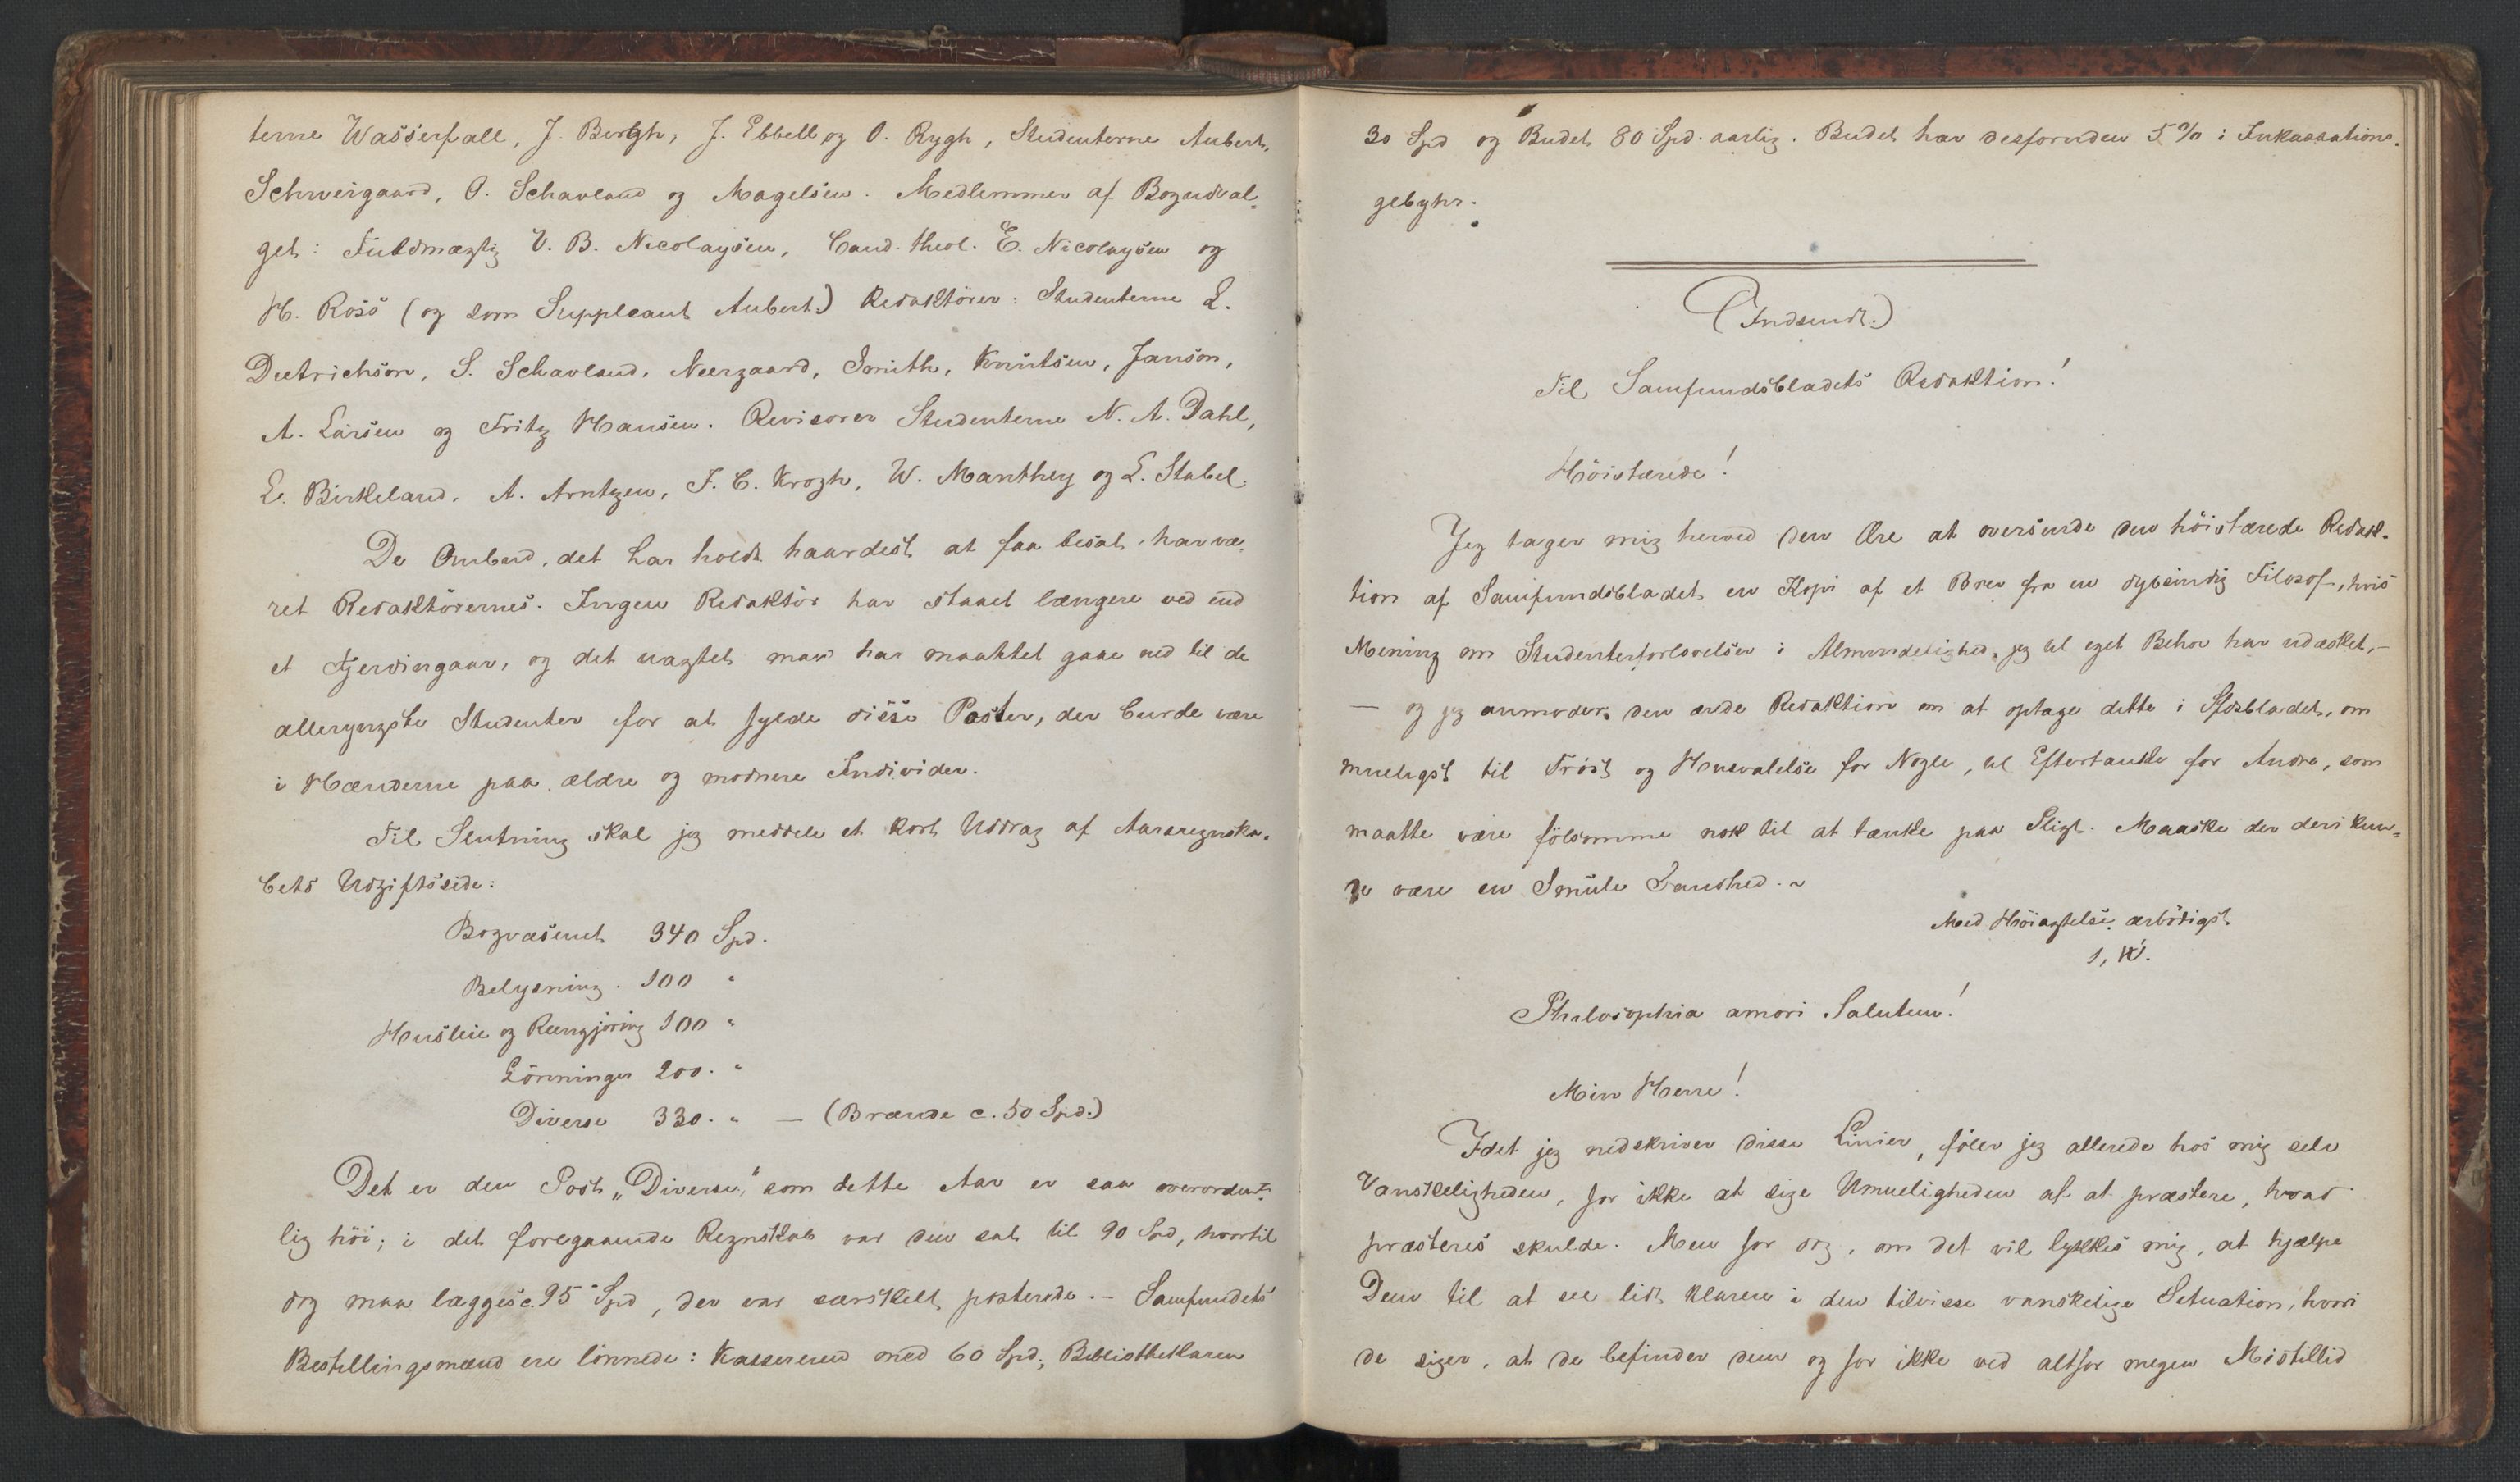 terne Wasserfall, J. Bergh, J. Ebbell og O. Rygh, Studenterne Aubert,
Schweigaard, O. Schavland og Magelsen. Medlemmer af Bogudval-
get: Fuldmægtig V. B. Nicolaysen, Cand. theol. E. Nicolaysen og
H. Ross (og som Suppleant Aubert.) Redaktører: Studenterne L.
Dietrichson, S. Schavland, Neergaard, Smith, Knutsen, Janson,
A. Larsen og Fritz Hansen. Revisorer Studenterne N. A. Dahl,
E. Birkeland, A. Arntzen, F. C. Krogh, W. Manthey og L. Stabel.
De Ombud, det har holdt haardest at faa besat, har væ-
ret Redaktörernes. Ingen Redaktör har staaet længere ved end
et Fjerdingaar, og det uagtet man har maattet gaae ned til de
alleryngste Studenter for at fylde disse Poster, der burde være
i Hænderne paa ældre og modnere Individer.
Til Slutning skal jeg meddele et kort Uddrag af Aarsregnska-
bets Udgiftsside:
Bogvæsenet 340 Spd.
Belysning. 100 "
Husleie og Rengjöring 100 "
Lönninger 200. "
Diverse 330. " — (Brænde c. 50 Spd.)
Det er den Post „Diverse," som dette Aar er saa overordent-
lig höi; i det foregaaende Regnskab var den sat til 90 Spd, hvortil
dog maa lægges c. 95 Spd, der var særskilt posterede. — Samfundets
Bestillingsmænd ere lönnede: Kassereren med 60 Spd; Bibliothekaren
30 Spd og Budet 80 Spd. aarlig. Budet har desforuden 5 % i Inkassations-
gebyhr.
(Indsendt.)
Til Samfundsbladets Redaktion!
Höistærede!
Jeg tager mig herved den Ære at oversende den höistærede Redak-
tion af Samfundsbladet en Kopi af et Brev fra en dybsindig Filosof, hvis
Mening om Studenterforlovelser i Almindelighed, jeg til eget Behov har udæsket, —
— og jeg anmoder den ærede Redaktion om at optage dette i Sfdsbladet, om
mueligst til Tröst og Husvalelse for Nogle, til Eftertanke for Andre, som
maatte være fölsomme nok til at tænke paa Sligt. Maaske der deri kun-
de være en Smule Sandhed. ~
Med Höiagtelse ærbödigst
1, W.
Philosophia amori Salutem!
Min Herre!
Idet jeg nedskriver disse Linier, föler jeg allerede hos mig selv
Vanskeligheden, for ikke at sige Umueligheden af at præstere, hvad
præsteres skulde. Men for dog, om det vil lykkes mig, at hjælpe
Dem til at see lidt klarere i den tilvisse vanskelige Situation, hvori
de siger, at de befinder dem og for ikke ved altfor megen Mistillid